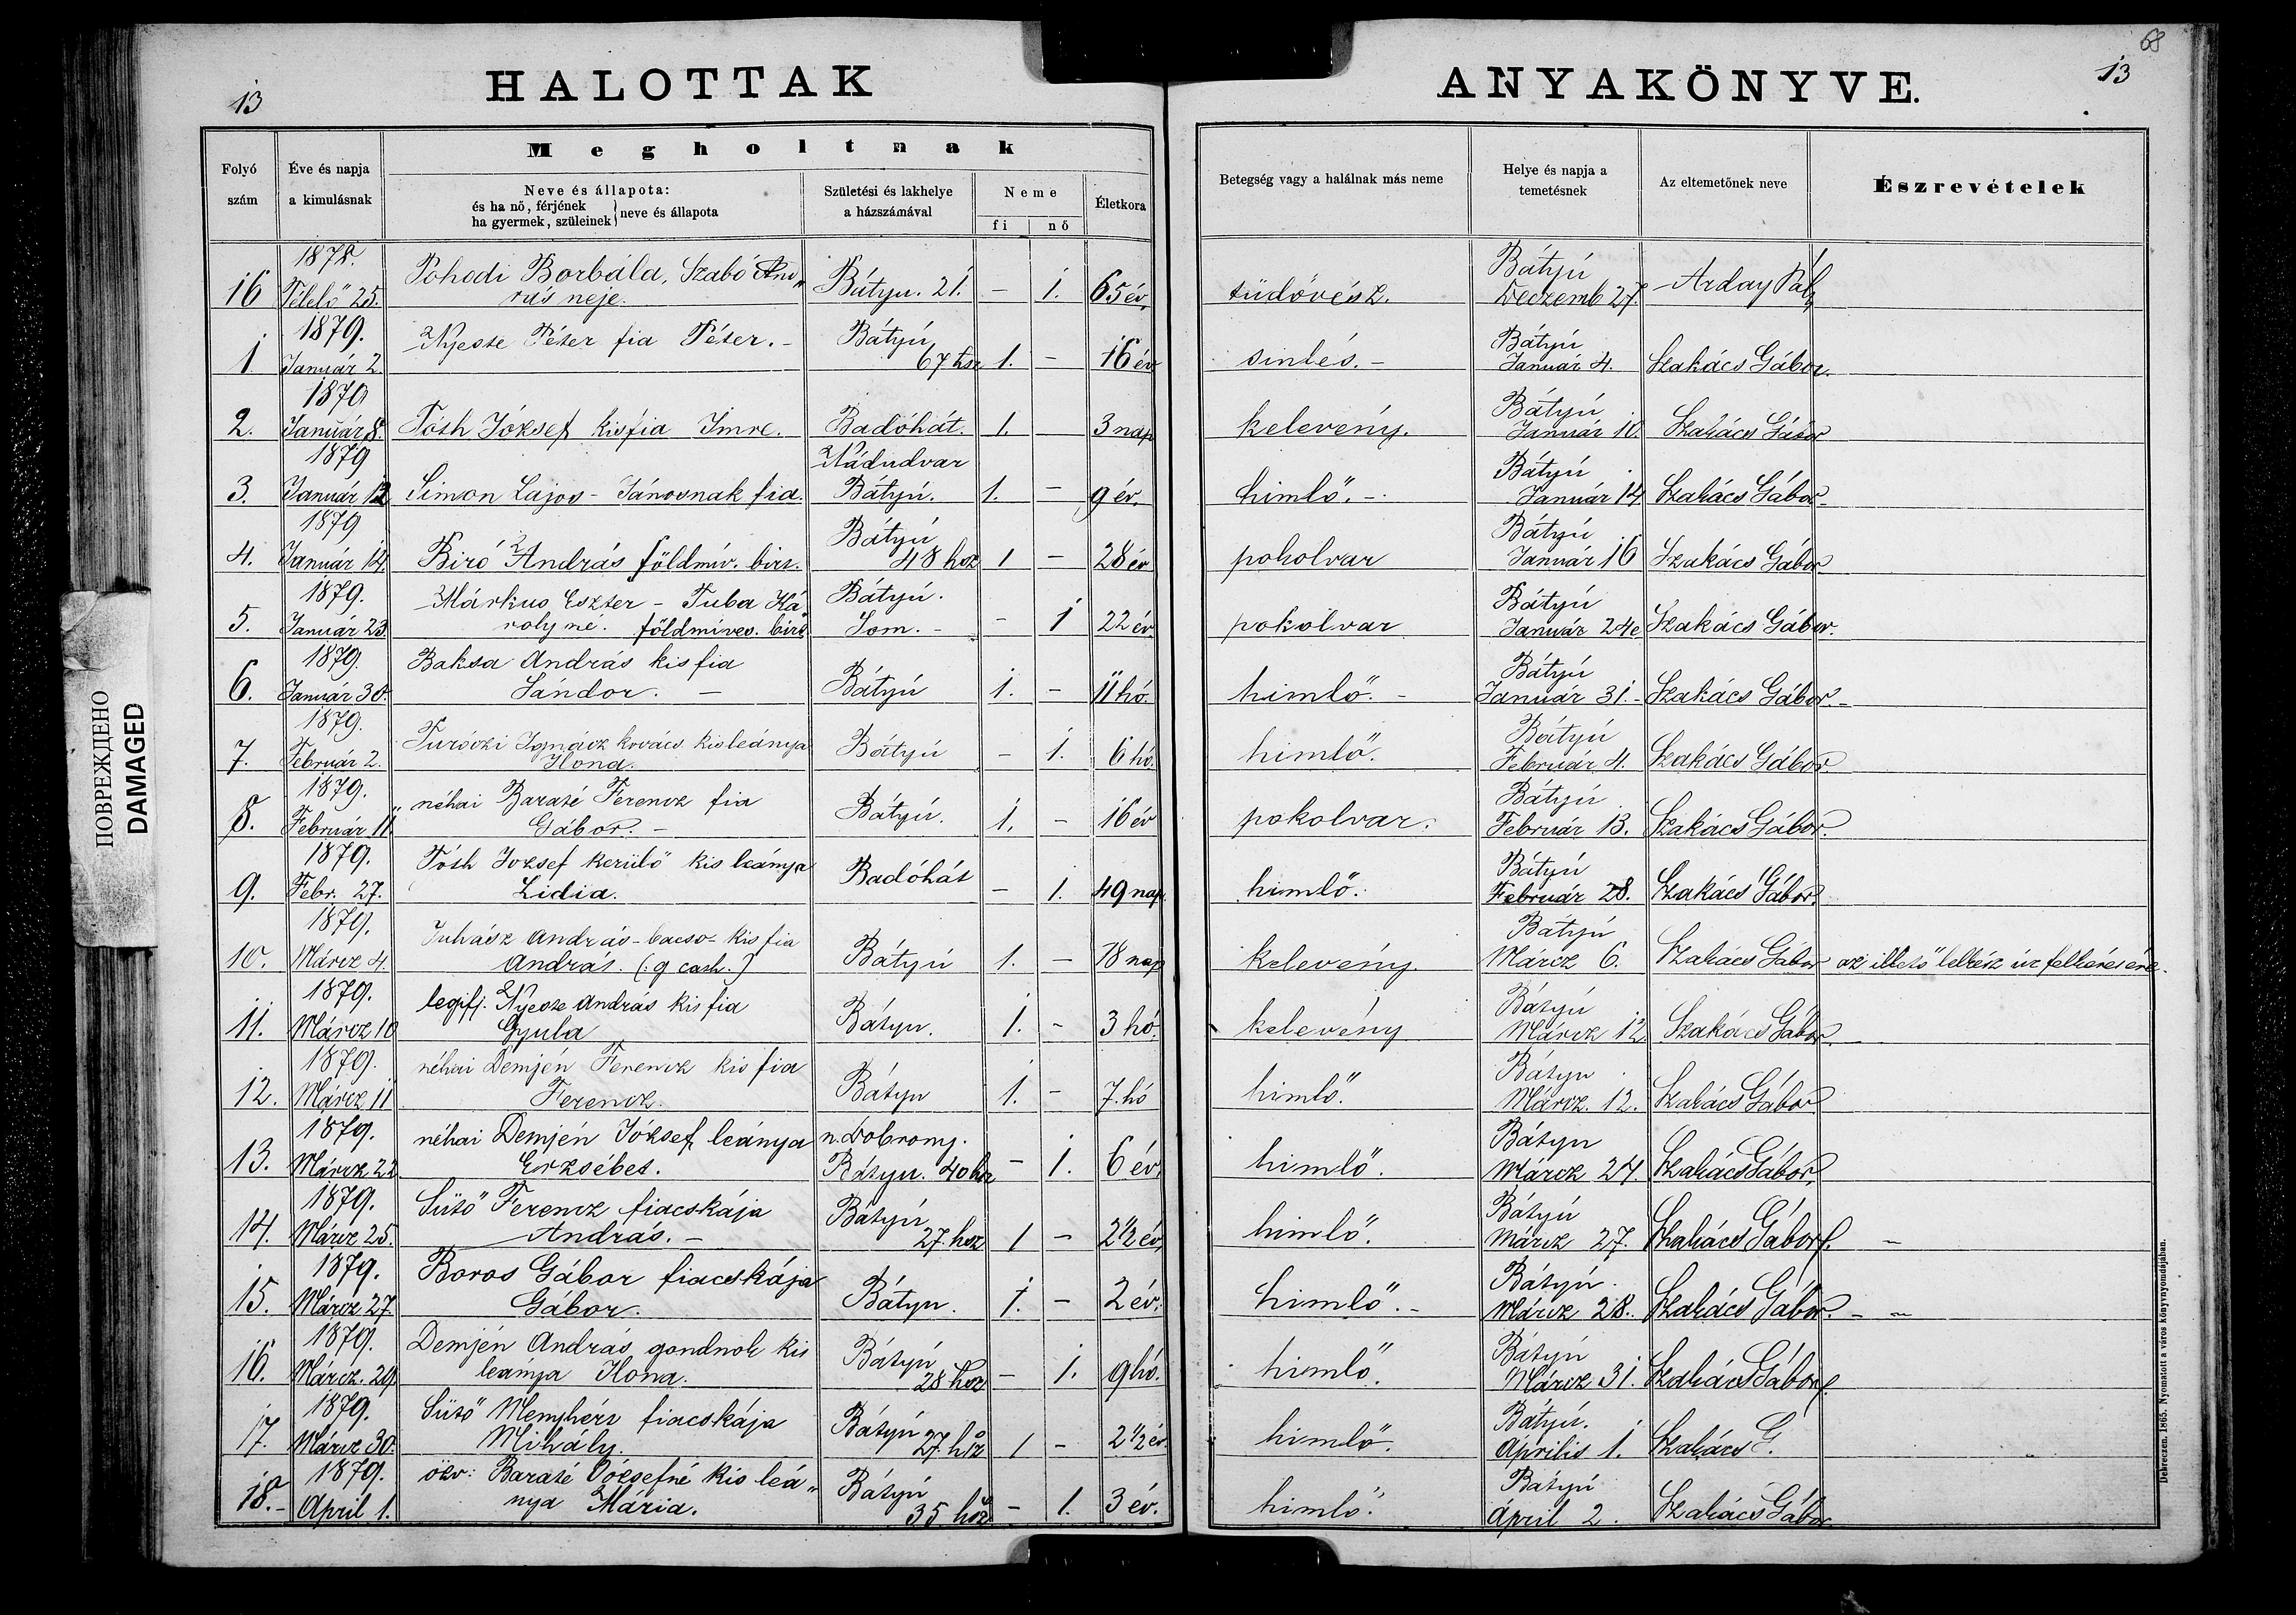 68
13
HALOTTAK
ANYAKÖNYVE.
13
Folyó szám
Éve és napja a kimulásnak
Megholtnak
Neve és állapota:
és ha nő, férjének
ha gyermek, szüleinek
neve és állapota
Születési és lakhelye a házszámával
Neme
fi
nő
Életkora
Betegség vagy a halálnak más neme
Helye és napja a temetésnek
Az eltemetőnek neve
Észrevételek
1878.
16 Télelő 25. Pohodi Borbála, Szabó And„ rás neje. Bátyu. 21. - 1. 65 év. tüdővész. Bátyú Deczemb 27. Arday Pál
1879.
1. Január 2. Nyeste Péter fia Péter. - Bátyú 67 hsz 1. - 16 év sinlés. - Bátyú Január 4. Szakács Gábor.
1879
2. Január 8. Tóth József kisfia Imre. Badóhát. 1. 3 nap kelevény. Bátyú Január 10. Szakács Gábor
1879
3. Január 12 Simon Lajos - Jánosnak fia. Nádudvar Bátyú. 1. - 9 év. himlő. - Bátyú Január 14 Szakács Gábor
1879
4. Január 14. Biró András földmiv. birt. Bátyú 48 hsz 1 - 28 év pokolvar Bátyú Január 16 Szakács Gábor
1879.
5. Január 23. Márkus Eszter - Tuba Ká„ rolyné. földmíves. birt Bátyú. Som. - - 1 22 év pokolvar Bátyú Január 24e Szakács Gábor.
1879.
6. Január 30. Baksa András kisfia Sándor. - Bátyú 1. - 11 hó. himlő. - Bátyú Január 31. - Szakács Gábor. -
1879.
7. Február 2. Turóczi Ignácz kovács kisleánya Ilona. Bátyú - 1. 6 hó. himlő. Bátyú Február 4. Szakács Gábor.
1879.
8. Február 11. néhai Baraté Ferencz fia Gábor. - Bátyú. 1. - 16 év pokolvar. Bátyú Február 13. Szakács Gábor.
1879.
9. Febr. 27. Tóth József kerülő kis leánya Lidia. Badóhát - 1. 49 nap himlő. Bátyú Február 28. Szakács Gábor.
1879.
10. Márcz 4. Juhász András - bacso - kis fia András. (: g cath. :) Bátyú 1. - 18 nap kelevény. Bátyú Márcz 6. Szakács Gábor az illető lelkész úr felkérésére.
1879.
11. Márcz 10 legifj. Nyeste András kis fia Gyula Bátyu. 1. - 3 hó. kelevény Bátyú Márcz 12. Szakács Gábor.
1879.
12. Márcz 11 néhai Demjén Ferencz kis fia Ferencz. Bátyu 1. - 7. hó himlő. Bátyu Márcz. 12. Szakács Gábor
1879.
13. Márcz 22 néhai Demjén József leánya Erzsébet. n. Dobrony. Bátyu. 40 hsz - 1. 6 év. himlő. Bátyu Márcz 24. Szakács Gábor.
1879.
14. Márcz 25. Sütő Ferencz fiacskája András. - Bátyú 27. hsz 1 - 2 1/2 év. himlő. Bátyú Márcz 27. Szakács Gábor. -
1879.
15. Márcz 27. Boros Gábor fiacskája Gábor. Bátyu. 1. - 2 év. himlő. - Bátyú. Márcz 28. Szakács Gábor. - -
1879.
16. Márcz. 29. Demjén András gondnok kis leánya Ilona. Bátyú 28 hsz - 1. 9 hó. himlő. Bátyú Márcz 31. Szakács Gábor.
1879.
17. Márcz 30. Sütő Menyhért fiacskája Mihály. Bátyú 27. hsz 1 - 2 1/2 év. himlő. Bátyú. Aprilis 1. Szakács G.
1879.
18. - April 1. özv: Baraté Józsefné kis leá„ nya Mária. Bátyú 35. hsz - 1. 3 év. himlő. Bátyú April 2. Szakács Gábor.
Debreczen, 1865. Nyomatott a város könyvnyomdájában.
ПОВРЕЖДЕНО
DAMAGED